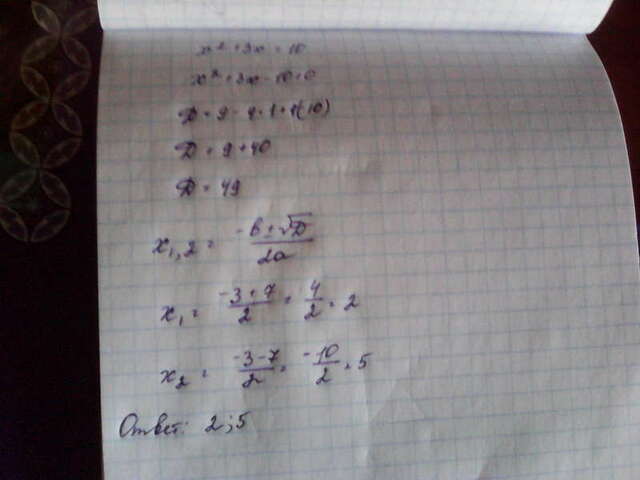 x² + 3x = 10
x² + 3x - 10 = 0
D = 9 - 4 · 1 · (10)
D = 9 + 40
D = 49
x₁,₂ = -b ± √D / 2a
x₁ = -3 + 7 / 2 = 4 / 2 = 2
x₂ = -3 - 7 / 2 = -10 / 2 = 5
Ответ: 2; 5